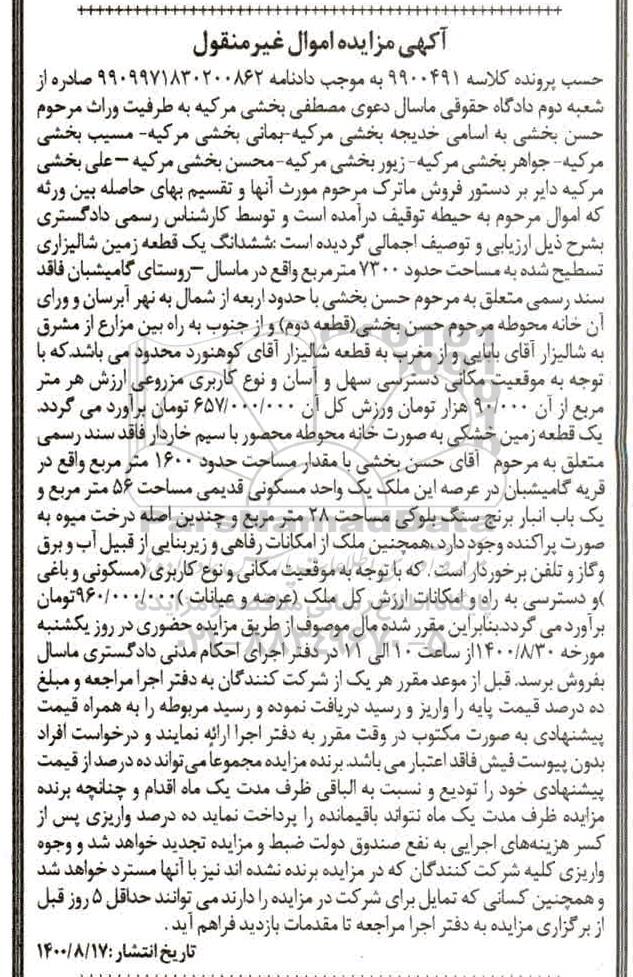 آگهی مزایده اموال غیر منقول
حسب پرونده کلاسه ۹۹۰۰۴۹۱ به موجب دادنامه ۹۹۰۹۹۷۱۸۳۰۲۰۰۸۶۲ صادره از
شعبه دوم دادگاه حقوقی ماسال دعوی مصطفی بخشی مرکیه به طرفیت وراث مرحوم
حسن بخشی به اسامی خدیجه بخشی مرکیه-بمانی بخشی مرکیه- مسیب بخشی
مرکیه- جواهر بخشی مرکیه- زیور بخشی مرکیه-محسن بخشی مرکیه –علی بخشی
مرکیه دایر بر دستور فروش ماترک مرحوم مورث آنها و تقسیم بهای حاصله بین ورثه
که اموال مرحوم به حیطه توقیف درآمده است و توسط کارشناس رسمی دادگستری
بشرح ذیل ارزیابی و توصیف اجمالی گردیده است :ششدانگ یک قطعه زمین شالیزاری
تسطیح شده به مساحت حدود ۷۳۰۰ مترمربع واقع در ماسال –روستای گامیشبان فاقد
سند رسمی متعلق به مرحوم حسن بخشی با حدود اربعه از شمال به نهر آبرسان و ورای
آن خانه محوطه مرحوم حسن بخشی(قطعه دوم) و از جنوب به راه بین مزارع از مشرق
به شالیزار آقای بابایی و از مغرب به قطعه شالیزار آقای کوهنورد محدود می باشد.که با
توجه به موقعیت مکانی دسترسی سهل و آسان و نوع کاربری مزروعی ارزش هر متر
مربع از آن ۹۰/۰۰۰ هزار تومان وززش کل آن ۶۵۷/۰۰۰/۰۰۰ تومان برآورد می گردد.
یک قطعه زمین خشکی به صورت خانه محوطه محصور با سیم خاردار فاقد سند رسمی
متعلق به مرحوم آقای حسن بخشی با مقدار مساحت حدود ۱۶۰۰ متر مربع واقع در
قریه گامیشبان در عرصه این ملک یک واحد مسکونی قدیمی مساحت ۵۶ متر مربع و
یک باب انبار برنج سنگ بلوکی مساحت ۲۸ متر مربع و چندین اصله درخت میوه به
صورت پراکنده وجود دارد.همچنین ملک از امکانات رفاهی و زیربنایی از قبیل آب و برق
وگاز و تلفن برخوردار است . که با توجه به موقعیت مکانی و نوع کاربری (مسکونی و باغی
)و دسترسی به راه و امکانات ارزش کل ملک (عرصه و عیانات )۹۶۰/۰۰۰/۰۰۰تومان
برآورد می گردد.بنابراین مقرر شده مال موصوف از طریق مزایده حضوری در روز یکشنبه
مورخه ۱۴۰۰/۸/۳۰از ساعت ۱۰ الی ۱۱ در دفتر اجرای احکام مدنی دادگستری ماسال
بفروش برسد. قبل از موعد مقرر هر یک از شرکت کنندگان به دفتر اجرا مراجعه و مبلغ
ده درصد قیمت پایه را واریز و رسید دریافت نموده و رسید مربوطه را به همراه قیمت
پیشنهادی به صورت مکتوب در وقت مقرر به دفتر اجرا ارائه نمایند و درخواست افراد
بدون پیوست فیش فاقد اعتبار می باشد. برنده مزایده مجموعاً می‌تواند ده درصد از قیمت
پیشنهادی خود را تودیع و نسبت به الباقی ظرف مدت یک ماه اقدام و چنانچه برنده
مزایده ظرف مدت یک ماه نتواند باقیمانده را پرداخت نماید ده درصد واریزی پس از
کسر هزینه‌های اجرایی به نفع صندوق دولت ضبط و مزایده تجدید خواهد شد و وجوه
واریزی کلیه شرکت کنندگان که در مزایده برنده نشده اند نیز با آنها مسترد خواهد شد
و همچنین کسانی که تمایل برای شرکت در مزایده را دارند می توانند حداقل ۵ روز قبل
از برگزاری مزایده به دفتر اجرا مراجعه تا مقدمات بازدید فراهم آید .
تاریخ انتشار :۱۴۰۰/۸/۱۷
ParsNamadData
۰۲۱-۸۸۳۴۹۶۷۰-۵